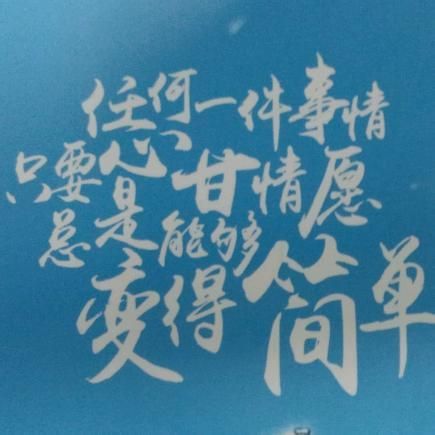 任何一件事情
只要心甘情愿
总是能够
变得简单